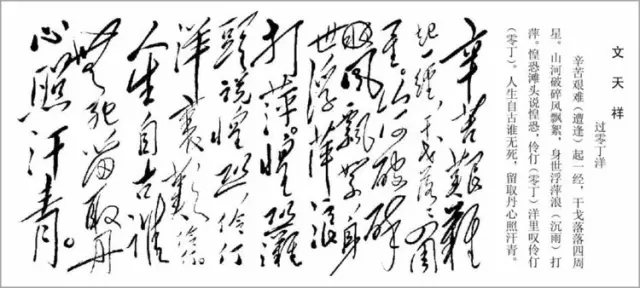 文天祥
过零丁洋
辛苦艰难（遭逢）起一经，干戈落落四周
星。山河破碎风飘絮，身世浮萍浪（沉雨）打
萍。惶恐滩头说惶恐，伶仃（零丁）洋里叹伶仃
（零丁）。人生自古谁无死，留取丹心照汗青。
辛苦艱難
起一經，干戈落落四周
星。山河破碎
風飄絮，身
世浮萍浪
打萍。惶恐灘
頭說惶恐，伶仃
洋裏歎伶仃。
人生自古誰
無死留取丹
心照汗青。